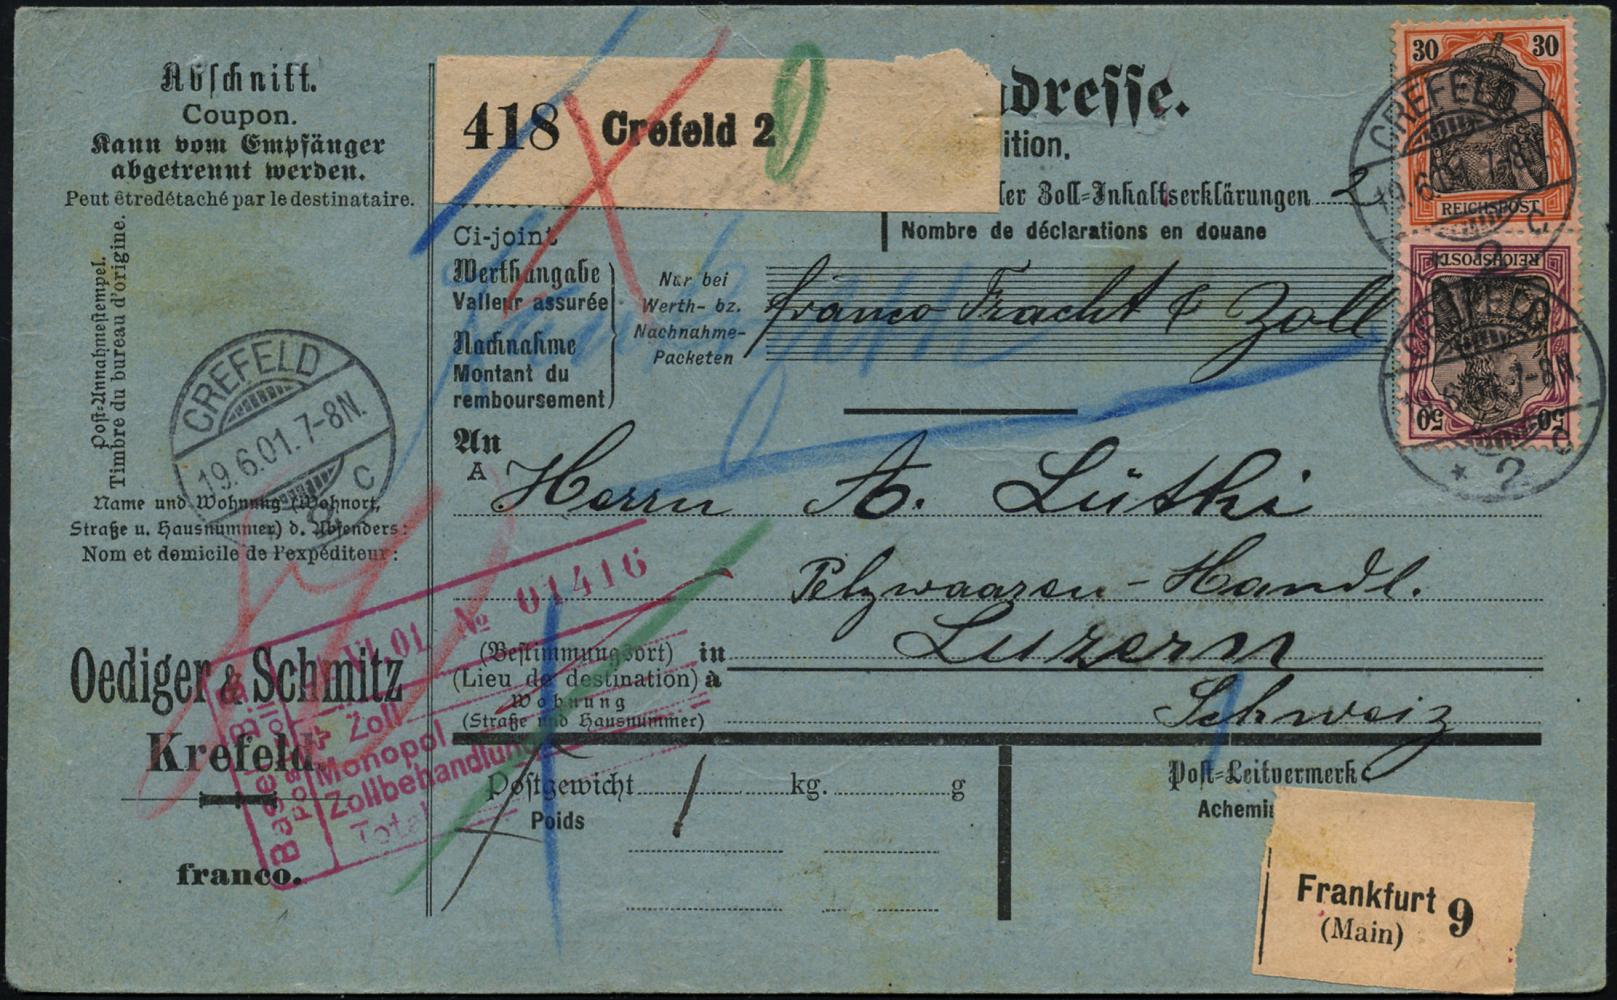 Abschnitt.
Coupon.
Kann vom Empfänger
abgetrennt werden.
Peut êtredétaché par le destinataire.
Post-Annahmestempel.
Timbre du bureau d'origine.
CREFELD
19.6.01.7-8N.
C
Name und Wohnung (Wohnort,
Straße u. Hausnummer) d. Absenders:
Nom et domicile de l'expéditeur:
Oediger & Schmitz
Krefeld.
franco.
№ 01416
VI. 01
Basel
Post
Zoll
Monopol
Zollbehandlung
Total
418 Crefeld 2
adresse.
ition.
der Zoll-Inhaltserklärungen 2
Nombre de déclarations en douane
Ci-joint
Werthangabe
Valleur assurée
Nachnahme
Montant du
remboursement
Nur bei
Werth- bz.
Nachnahme-
Packeten
franco Fracht & Zoll
An
A
Herrn A. Lüthi
Pelzwaaren-Handl.
(Bestimmungsort) in
(Lieu de destination) à
Luzern
Wohnung
(Straße und Hausnummer)
Schweiz
Postgewicht 1 kg. g
Poids
Post-Leitvermerk
Achemi
Frankfurt 9
(Main)
30 30
REICHSPOST
CREFELD
19.6.01.7-8N
C.
2
REICHSPOST
50 50
CREFELD
7-8N.
C
* 2